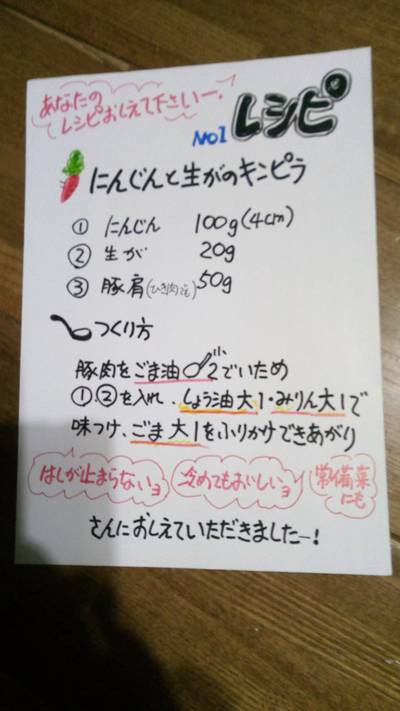 あなたの
レシピおしえて下さいー。
No1 レシピ
にんじんと生がのキンピラ
① にんじん 100g(4cm)
② 生が 20g
③ 豚肩(ひき肉でも) 50g
つくり方
豚肉をごま油 2でいため
①②を入れ、しょう油大1・みりん大1で
味つけ、ごま大1をふりかけできあがり
はしが止まらないョ
冷めてもおいしいョ
常備菜
にも
さんにおしえていただきましたー!